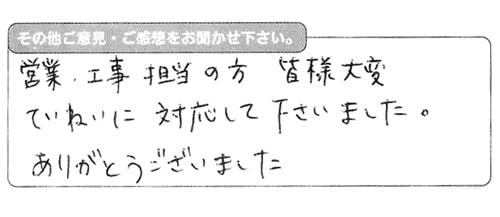 その他ご意見・ご感想をお聞かせ下さい。
営業・工事担当の方 皆様大変
ていねいに対応して下さいました。
ありがとうございました